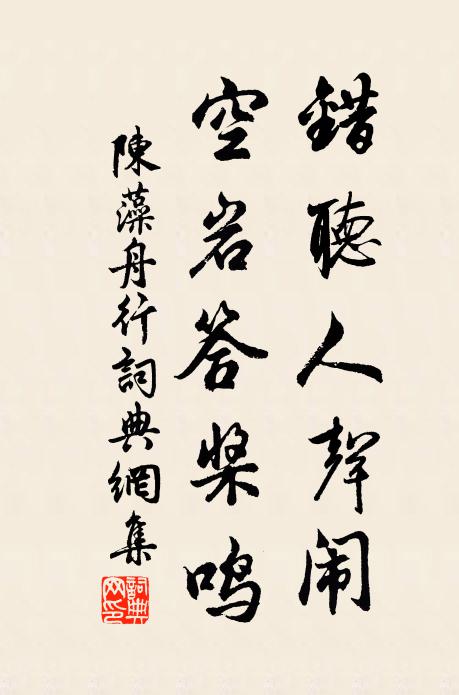 錯聽人聲闹
空岩答桨鸣
陳藻舟行詞典網集
詞典网印